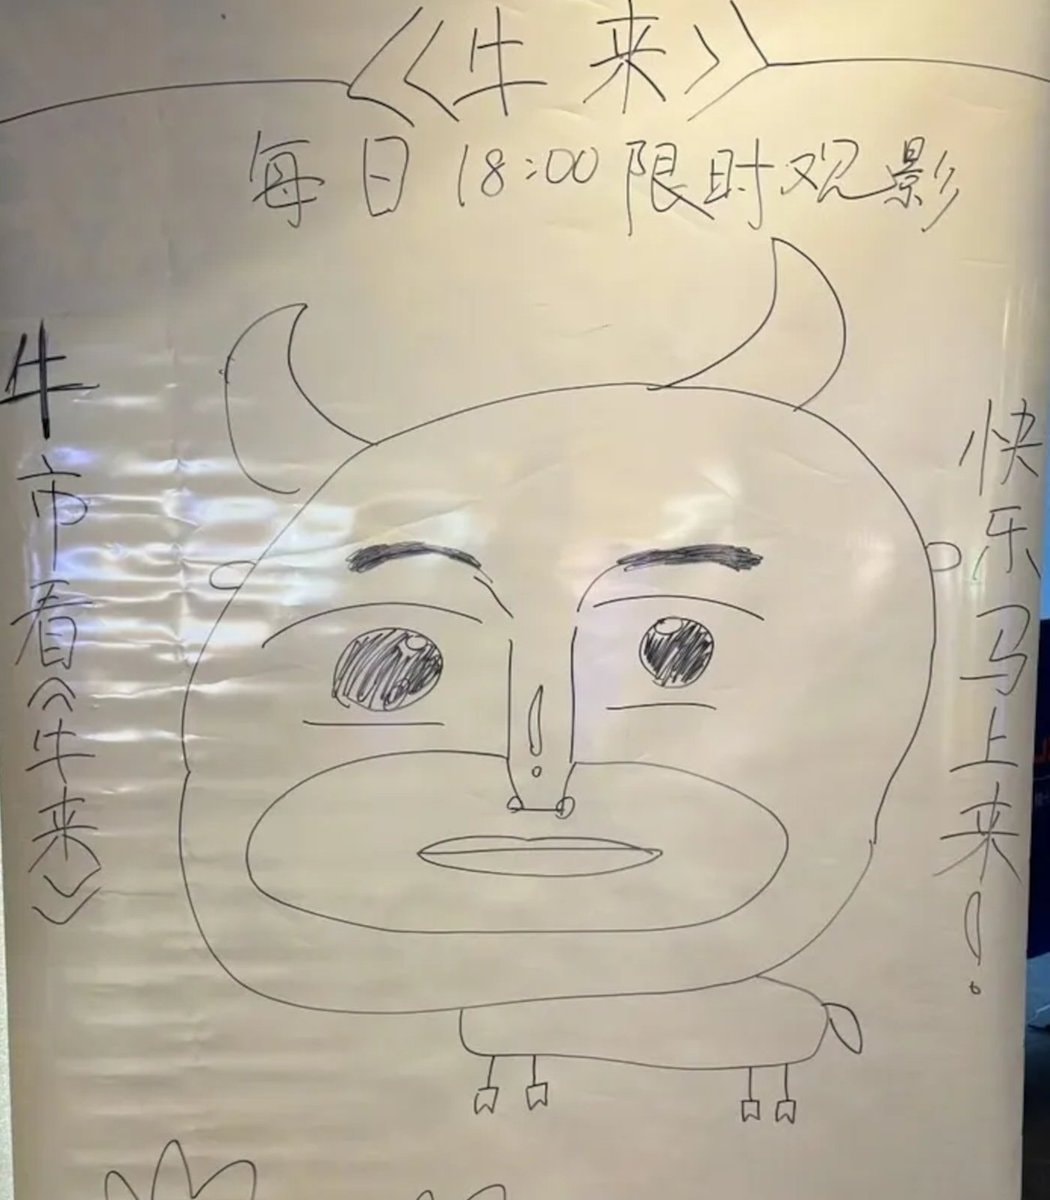 《牛来》
每日18:00限时观影
牛市看《牛来》
快乐马上来!